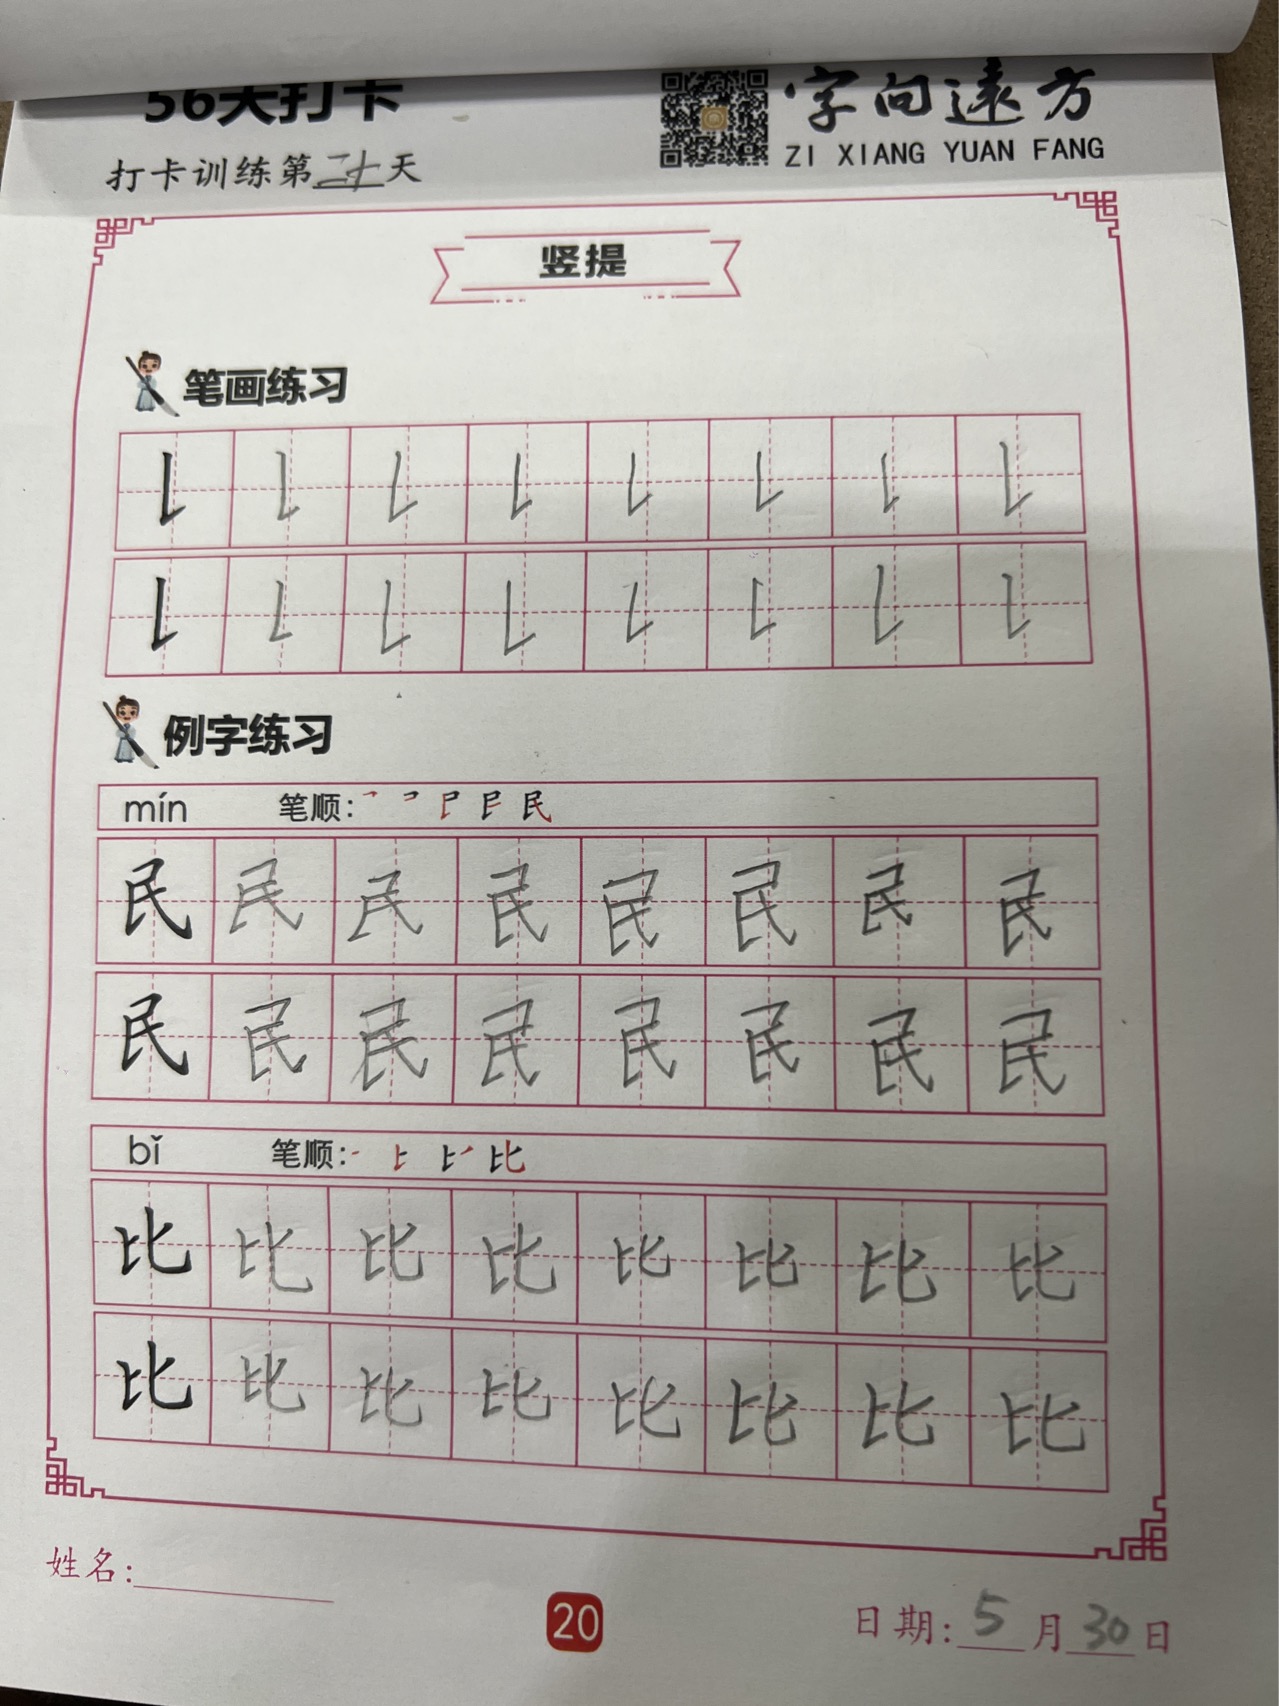 56天打卡
字向遠方
ZI XIANG YUAN FANG
打卡训练第二十天
竖提
笔画练习
例字练习
mín 笔顺: 民
民 民 民 民 民 民 民 民
民 民 民 民 民 民 民 民
bǐ 笔顺: 比
比 比 比 比 比 比 比 比
比 比 比 比 比 比 比 比
姓名:
20
日期: 5 月 30 日